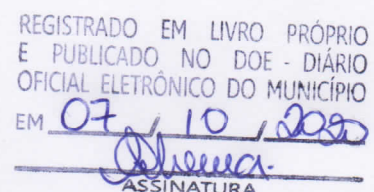 REGISTRADO EM LIVRO PRÓPRIO
E PUBLICADO NO DOE - DIÁRIO
OFICIAL ELETRÔNICO DO MUNICÍPIO
EM 07 / 10 / 2020
ASSINATURA